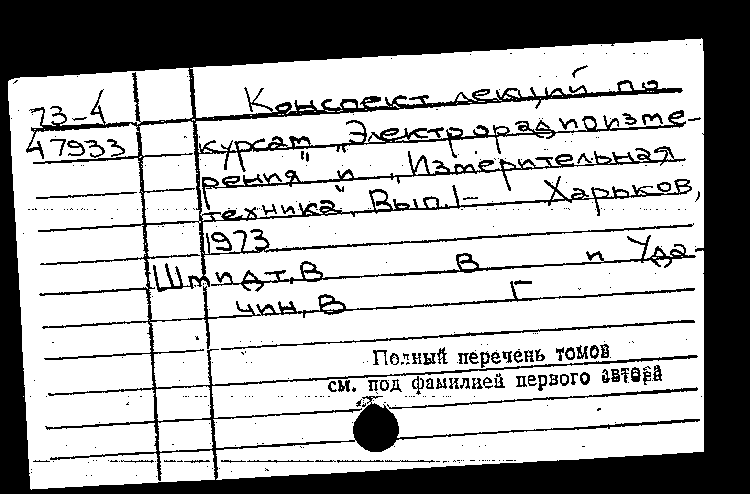 73-4 Конспект лекций по
47933 курсам „Электрорадиоизме-
рения" и „Измерительная
техника". Вып.1- Харьков,
1973
Шмидт, В В и Уда-
чин, В Г
Полный перечень томов
см. под фамилией первого автора